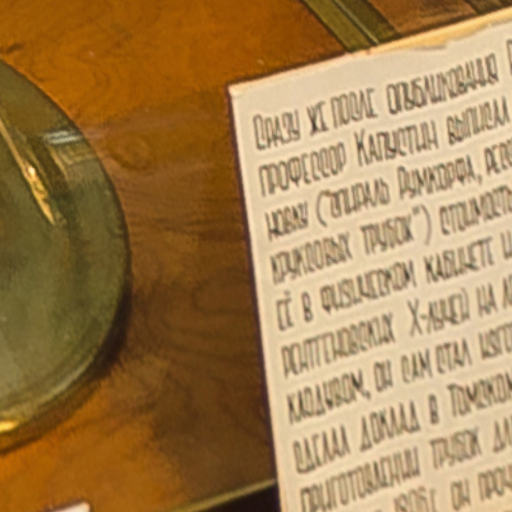 Сразу же после опубликования
профессор Капустин выписал
новку ("Спираль Румкорфа,
круксовых трубок") стоимость
её в физическом кабинете
рентгеновских Х-лучей на
он сам стал
сделал доклад в Томском
приготовлении трубок
1896 г. он